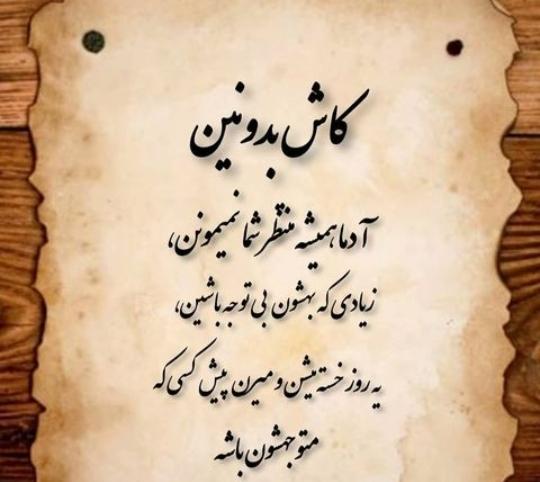 کاش بدونین
آدما همیشه منتظر شما نمیمونن،
زیادی که بهشون بی توجه باشین،
یه روز خسته میشن و میرن پیش کسی که
متوجهشون باشه